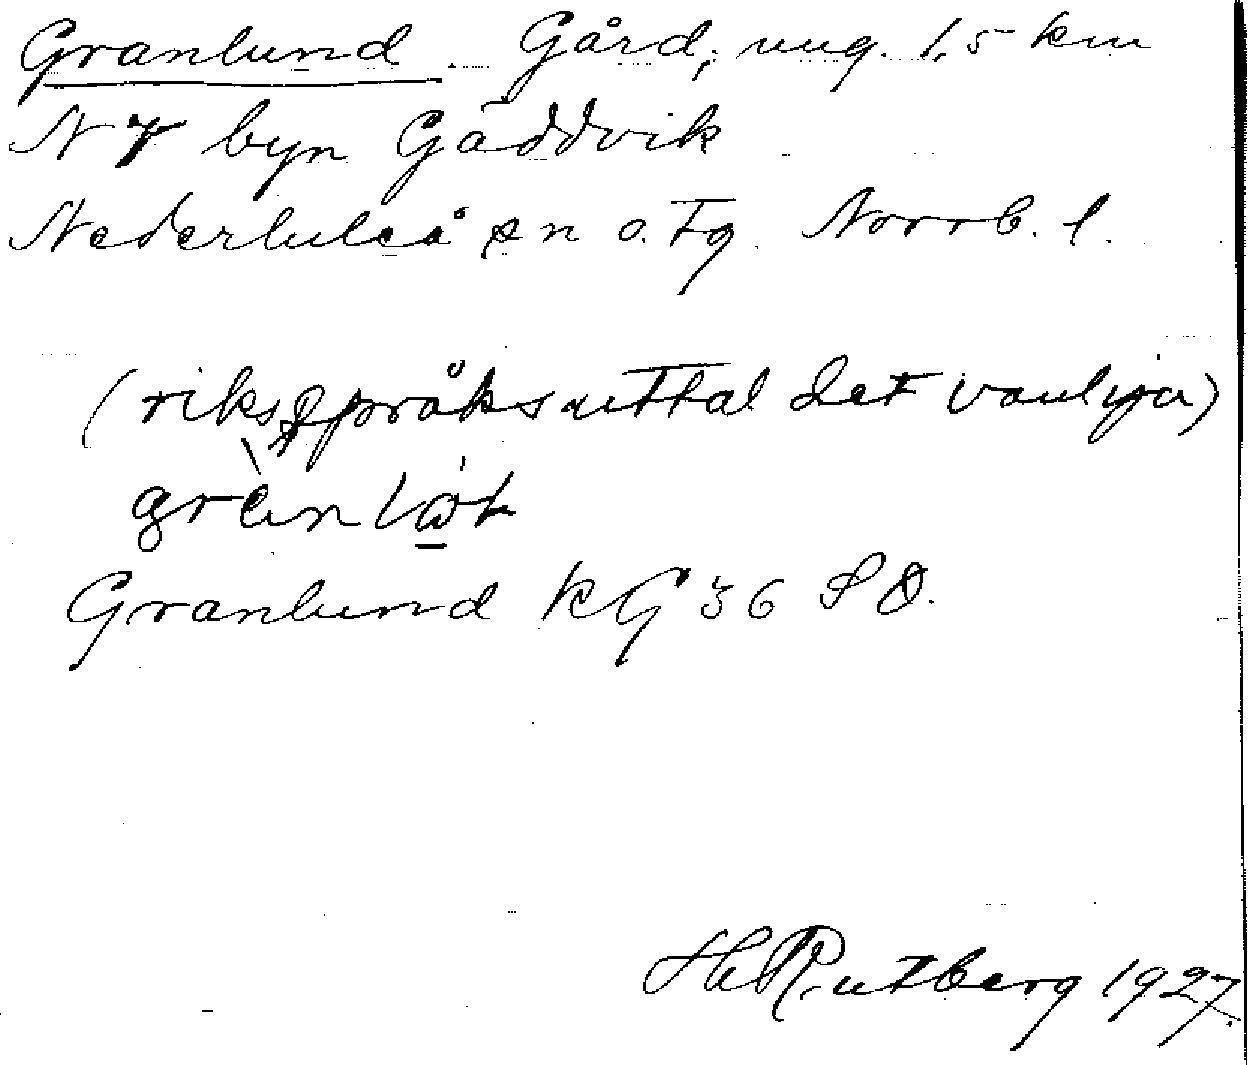 Granlund Gård, ung. 1,5 km
N byn Gäddvik
Nederluleå sn o. Tg. Norrb. l.
(riksspråksuttal det vanliga)
Granlund KG 36 SO.
H Rutberg 1927.